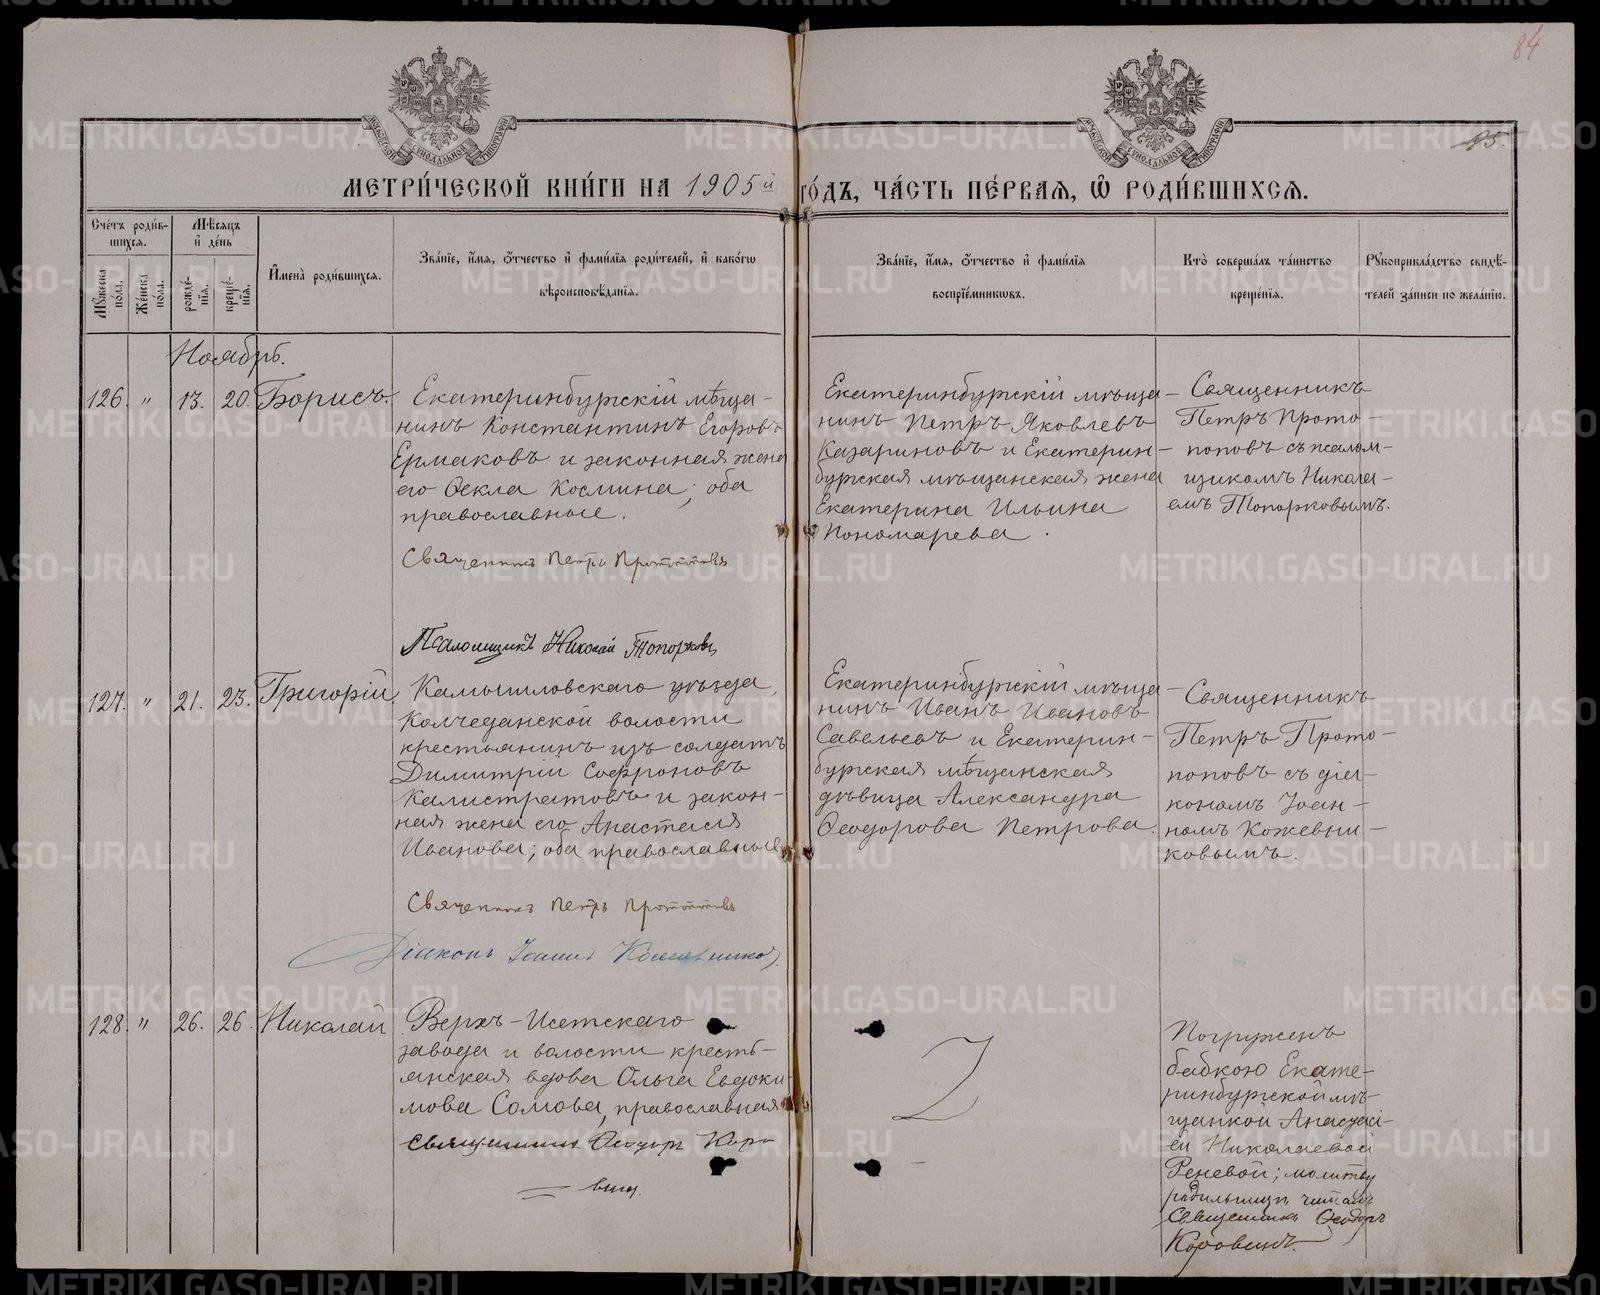 84
85.
МОСКОВСКОЙ СУНОДАЛЬНОЙ ТИПОГРАФІИ
МОСКОВСКОЙ СУНОДАЛЬНОЙ ТИПОГРАФІИ
МЕТРИ́ЧЕСКОЙ КНИ́ГИ НА 1905й го́дъ, ча́сть пе́рвая, ѿ роди́вшихсѧ.
Сче́тъ роди́в-
шихсѧ.
Мꙋжеска по́ла.
Же́нска по́ла.
Мѣ́сѧцъ
и҆ де́нь
рожде́-
нїѧ.
креще́-
нїѧ.
И҆мена̀ роди́вшихсѧ.
Зва́нїе, и҆́мѧ, ѻ҆́тчество и҆ фами́лїѧ роди́телей, и҆ како́гѡ
вѣроисповѣ́данїѧ.
Зва́нїе, и҆́мѧ, ѻ҆́тчество и҆ фами́лїѧ
воспрїе́мникѡвъ.
Кто̀ соверша́лъ та́инство
креще́нїѧ.
Рꙋкоприкла́дство свидѣ́-
телей за́писи по жела́нїю.
Ноябрь.
126. " 13. 20. Борисъ.
Екатеринбургскій мѣща-
нинъ Константинъ Егоровъ
Ермаковъ и законная жена
его Ѳекла Космина; оба
православные.
Священникъ Петръ Протопоповъ
Псаломщикъ Николай Топорковъ
Екатеринбургскій мѣща-
нинъ Петръ Яковлевъ
Казариновъ и Екатерин-
бургская мѣщанская жена
Екатерина Ильина
Пономарева.
Священникъ
Петръ Прото-
поповъ съ псалом-
щикомъ Никола-
емъ Топорковымъ.
127. " 21. 23. Григорій.
Камышловскаго уѣзда,
Колчеданской волости
крестьянинъ изъ солдатъ
Димитрій Софроновъ
Калистратовъ и закон-
ная жена его Анастасія
Иванова; оба православные
Священникъ Петръ Протопоповъ
Діаконъ Іоаннъ Кожевниковъ.
Екатеринбургскій мѣща-
нинъ Иванъ Ивановъ
Савельевъ и Екатерин-
бургская мѣщанская
дѣвица Александра
Ѳеодорова Петрова.
Священникъ
Петръ Прото-
поповъ съ діа-
кономъ Іоан-
номъ Кожевни-
ковымъ.
128. " 26. 26. Николай
Верхъ-Исетскаго
завода и волости кресть-
янская вдова Ольга Евдоки-
мова Сомова, православная
Священникъ Ѳеодоръ Коро-
винъ.
Z
Погруженъ
бабкою Екате-
ринбургской мѣ-
щанкой Анастасі-
ей Николаевой
Реневой; молитву
родильницѣ читалъ
Священникъ Ѳеодоръ
Коровинъ.
METRIKI.GASO-URAL.RU